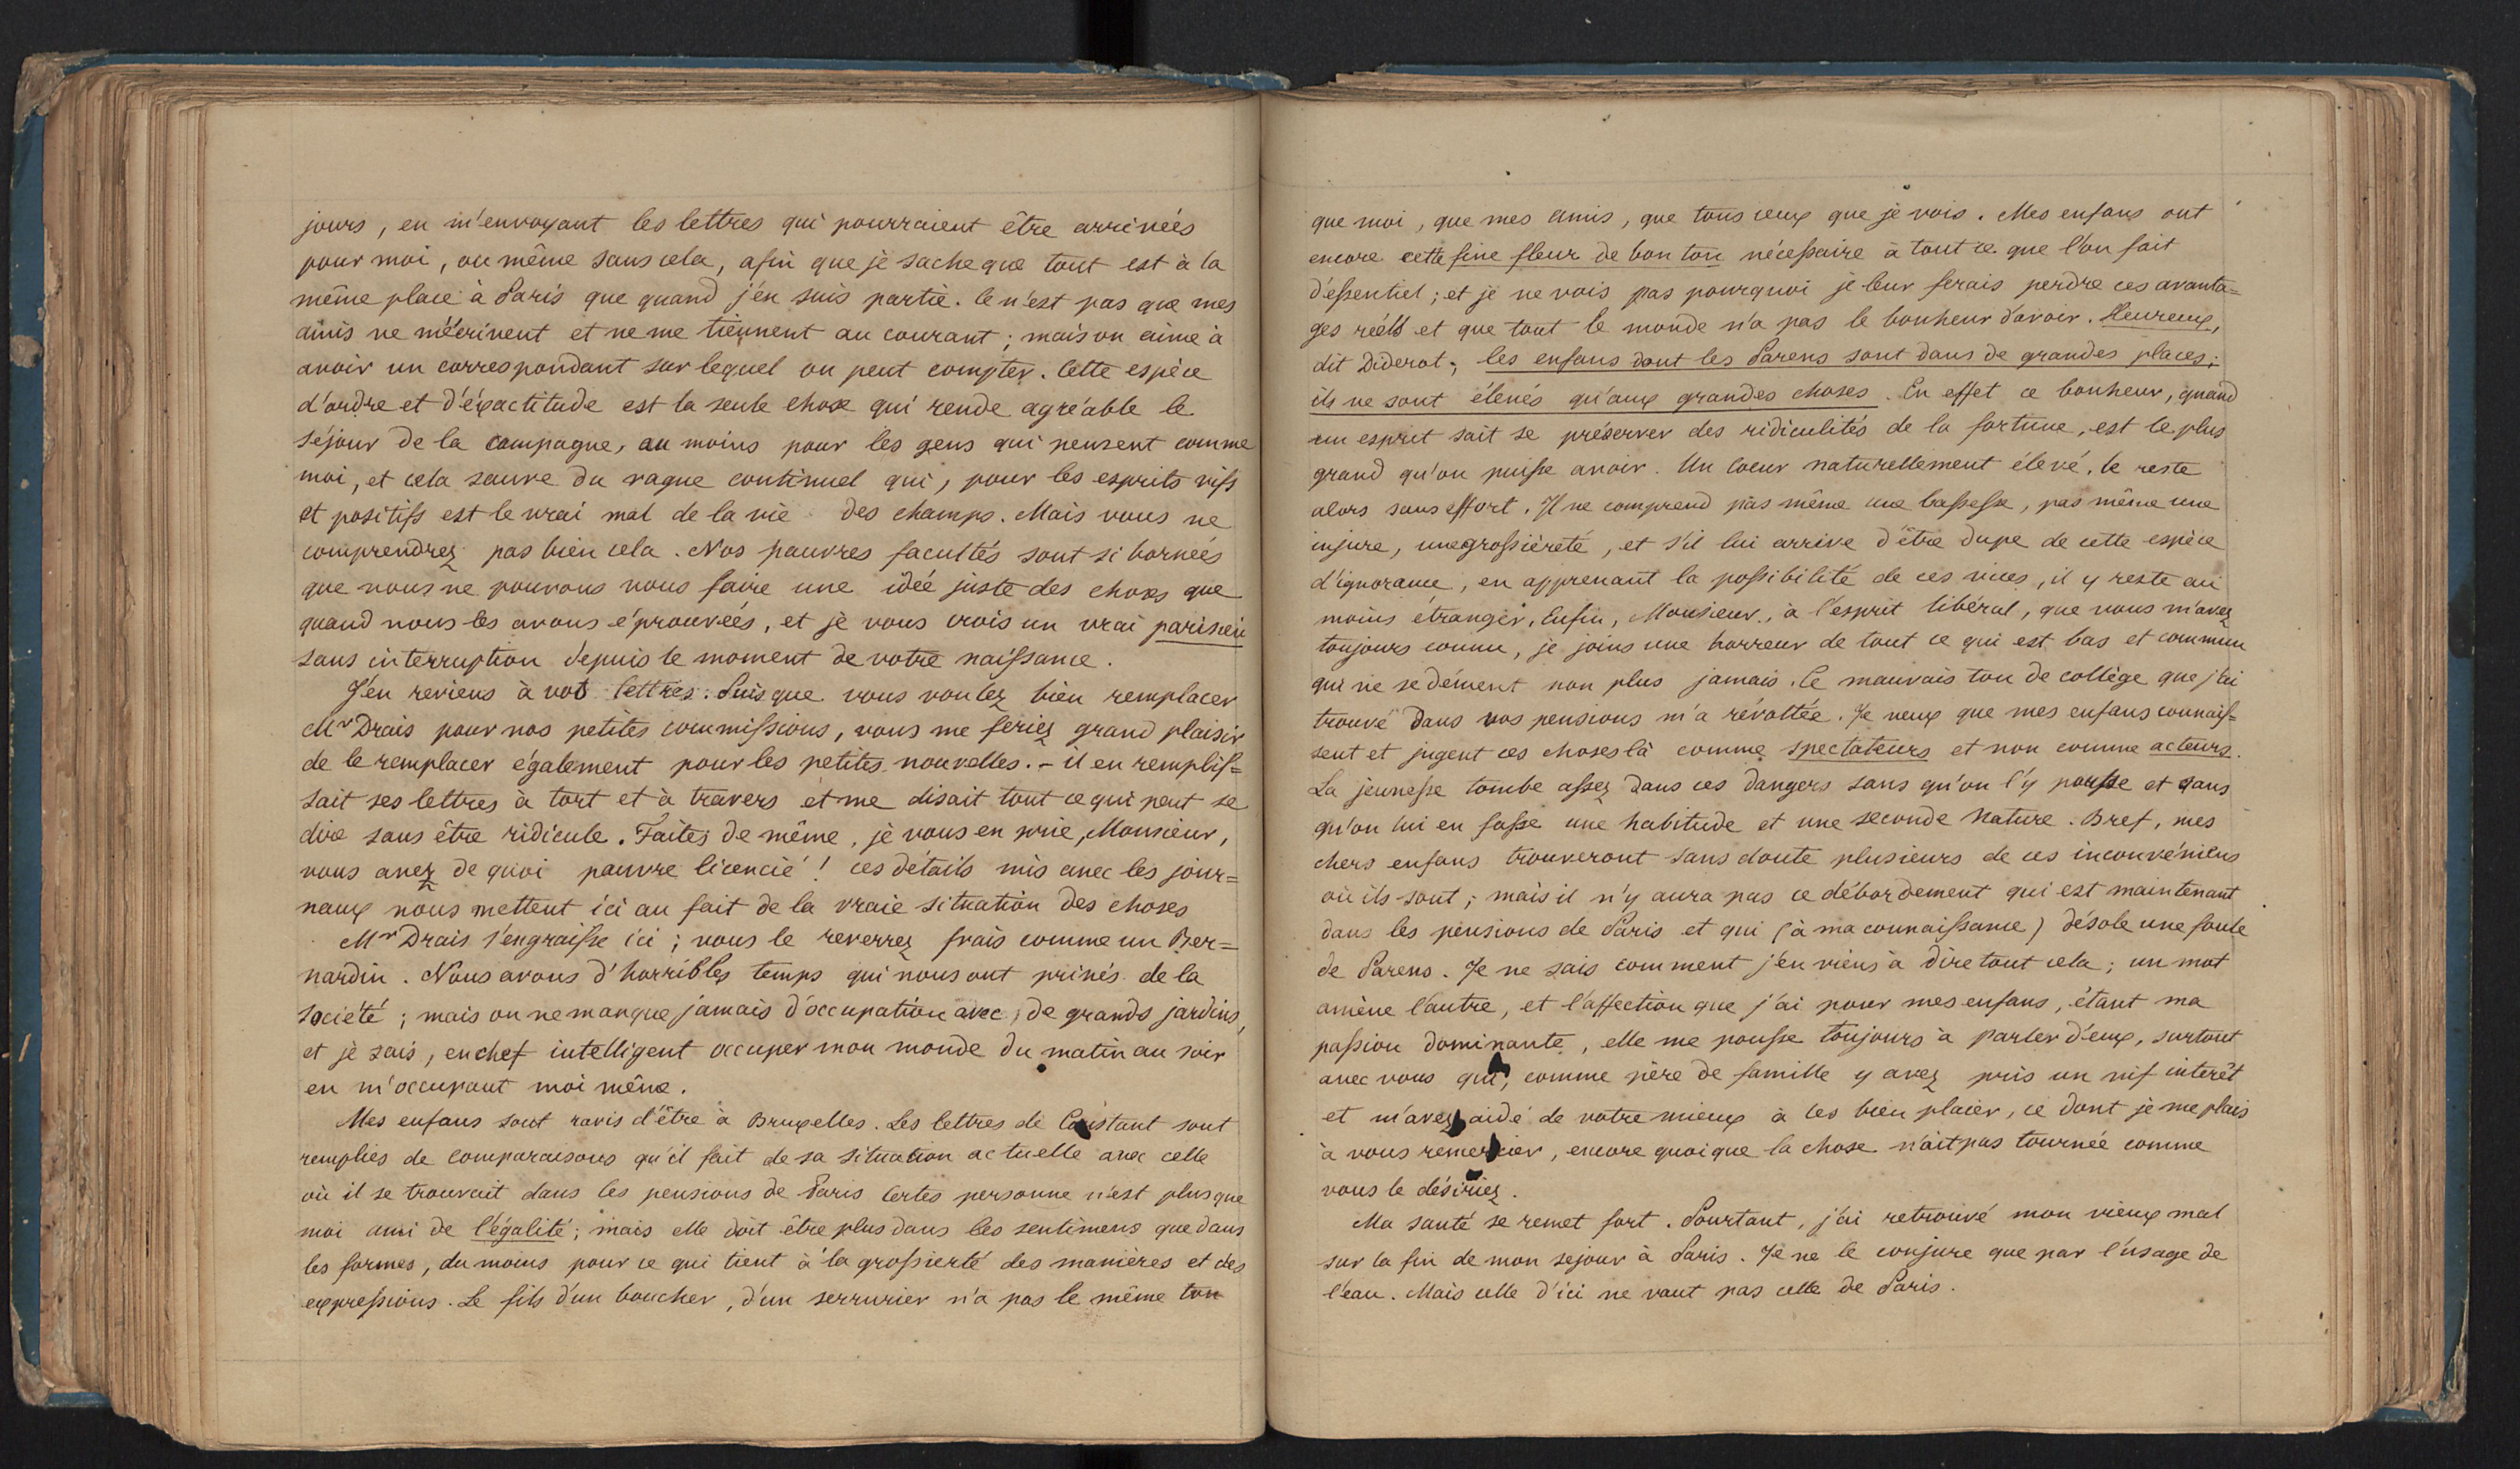 jours, en m'envoyant les lettres qui pourraient être arrivées
pour moi, ou même sans cela, afin que je sache que tout est à la
même place à Paris que quand j'en suis partie. Ce n'est pas que mes
amis ne m'écrivent et ne me tiennent au courant ; mais on aime à
avoir un correspondant sur lequel on peut compter. Cette espèce
d'ordre et d'exactitude est la seule chose qui rende agréable le
séjour de la campagne, au moins pour les gens qui pensent comme
moi, et cela sauve du vague continuel qui, pour les esprits vifs
et positifs est le vrai mal de la vie des champs. Mais vous ne
comprendrez pas bien cela. Nos pauvres facultés sont si bornées
que nous ne pouvons nous faire une idée juste des choses que
quand nous les avons éprouvées, et je vous crois un vrai parisien
sans interruption depuis le moment de votre naissance.
J'en reviens à vos lettres. Puisque vous voulez bien remplacer
Mr Drais pour nos petites commissions, vous me feriez grand plaisir
de le remplacer également pour les petites nouvelles. - il en remplis=
sait ses lettres à tort et à travers et me disait tout ce qui peut se
dire sans être ridicule. Faites de même, je vous en prie, Monsieur,
vous avez de quoi pauvre licencié ! ces détails mis avec les jour=
naux nous mettent ici au fait de la vraie situation des choses
Mr Drais s'engraisse ici ; vous le reverrez frais comme un Ber=
nardin. Nous avons d'horribles temps qui nous ont privés de la
société ; mais on ne manque jamais d'occupation avec, de grands jardins,
et je sais, en chef intelligent occuper mon monde du matin au soir
en m'occupant moi même.
Mes enfans sont ravis d'être à Bruxelles. Les lettres de Constant sont
remplies de comparaisons qu'il fait de sa situation actuelle avec celle
où il se trouvait dans les pensions de Paris Certes personne n'est plus que
moi ami de l'égalité ; mais elle doit être plus dans les sentimens que dans
les formes, du moins pour ce qui tient à la grossierté des manières et des
expressions. Le fils d'un boucher, d'un serrurier n'a pas le même ton
que moi, que mes amis, que tous ceux que je vois. Mes enfans ont
encore cette fine fleur de bon ton nécessaire à tout ce que l'on fait
d'essentiel ; et je ne vois pas pourquoi je leur ferais perdre ces avanta=
ges réels et que tout le monde n'a pas le bonheur d'avoir. Heureux,
dit Diderot, les enfans dont les Parens sont dans de grandes places ;
ils ne sont élevés qu'aux grandes choses. En effet ce bonheur, quand
un esprit sait se préserver des ridiculités de la fortune, est le plus
grand qu'on puisse avoir. Un coeur naturellement élevé, le reste
alors sans effort. Il ne comprend pas même une bassesse, pas même une
injure, une grossièreté, et s'il lui arrive d'être dupe de cette espèce
d'ignorance, en apprenant la possibilité de ces vices, il y reste au
moins étranger. Enfin, Monsieur, à l'esprit libéral, que vous m'avez
toujours connu, je joins une horreur de tout ce qui est bas et commun
qui ne se dément non plus jamais. Ce mauvais ton de collège que j'ai
trouvé dans vos pensions m'a révoltée. Je veux que mes enfans connais=
sent et jugent ces choses là comme spectateurs et non comme acteurs.
La jeunesse tombe assez dans ces dangers sans qu'on l'y pousse et sans
qu'on lui en fasse une habitude et une seconde nature. Bref, mes
chers enfans trouveront sans doute plusieurs de ces inconvéniens
où ils sont ; mais il n'y aura pas ce débordement qui est maintenant
dans les pensions de Paris et qui (à ma connaissance) désole une foule
de Parens. Je ne sais comment j'en viens à dire tout cela ; un mot
amène l'autre, et l'affection que j'ai pour mes enfans, étant ma
passion dominante, elle me pousse toujours à parler d'eux, surtout
avec vous qui, comme père de famille y avez pris un vif intérêt
et m'avez aidé de votre mieux à les bien placer, ce dont je me plais
à vous remercier, encore quoique la chose n'ait pas tournée comme
vous le désiriez.
Ma santé se remet fort. Pourtant, j'ai retrouvé mon vieux mal
sur la fin de mon sejour à Paris. Je ne le conjure que par l'usage de
l'eau. Mais celle d'ici ne vaut pas celle de Paris.